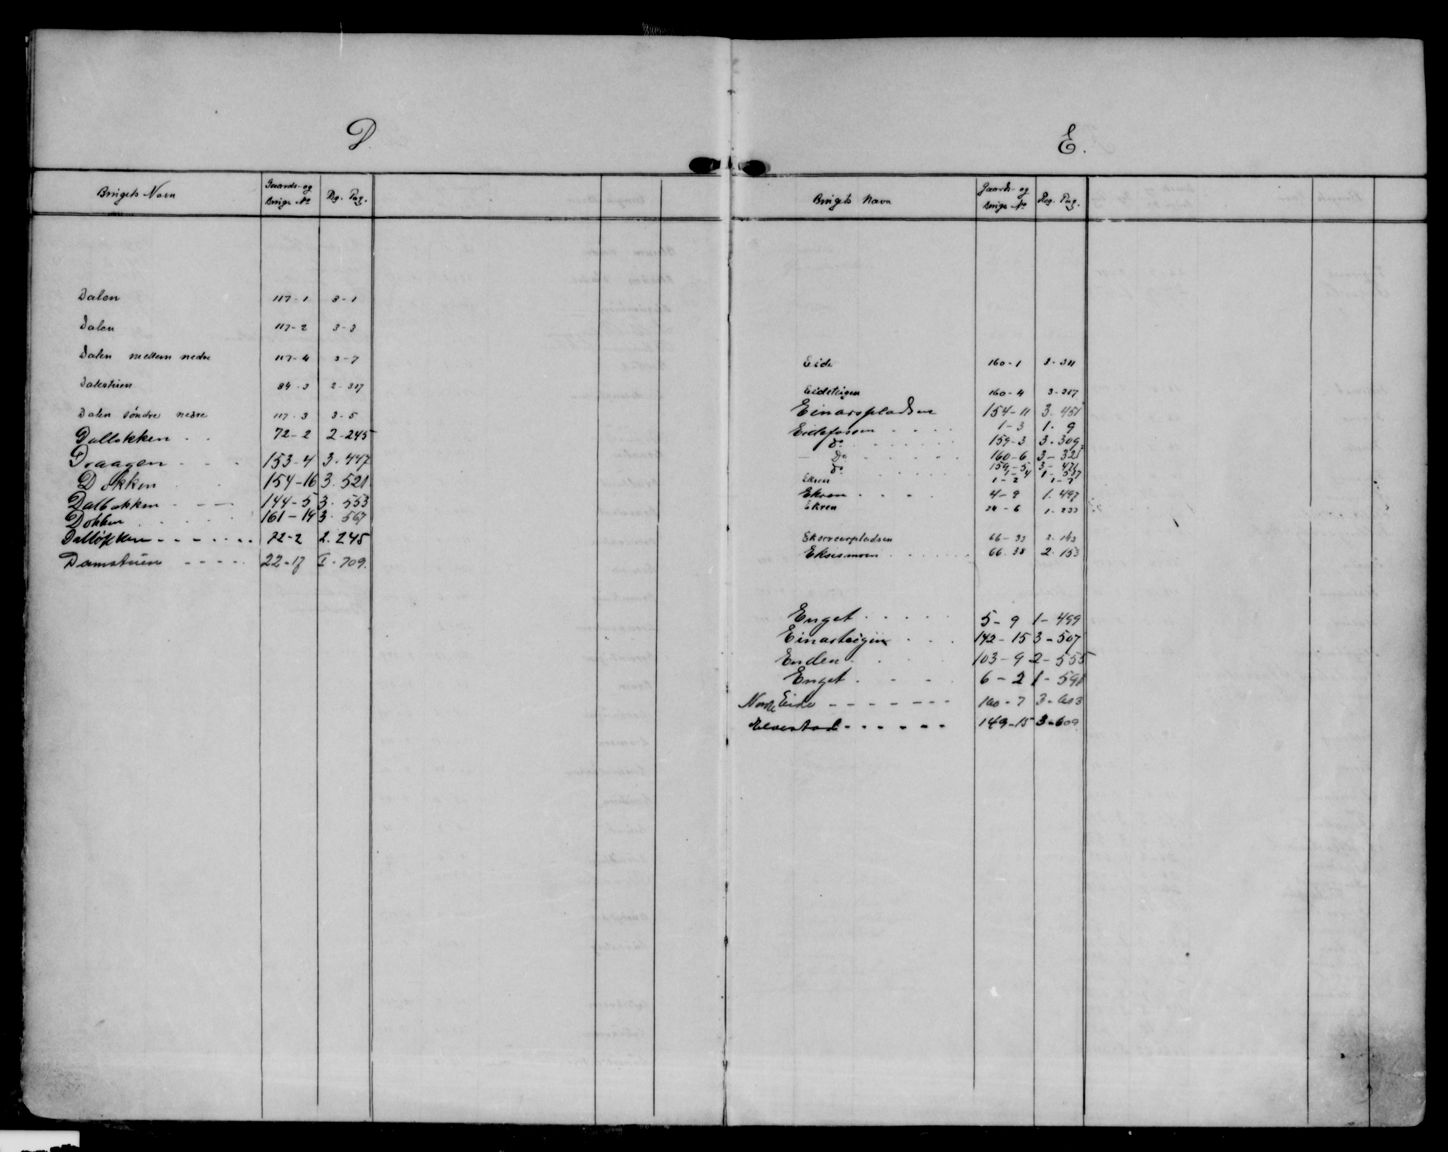 D.
Brugets Navn Gaards- og Brugs No Reg. Pag.
Dalen 117-1 3-1
Dalen 117-2 3-3
Dalen mellem nedre 117-4 3-7
Dalestuen 84-3 2-317
Dalen söndre nedre 117-3 3-5
Dalløkken 72-2 2-245
Draagen 153-4 3-447
Døkken 154-16 3-521
Dalbakken 144-5 3-553
Dokken 161-14 3-567
Dalløkken 72-2 2-245
Damstuen 22-17 I-709.
E.
Brugets Navn Gaards- og Brugs No Reg. Pag.
Eide 160-1 3-311
Eidsteigen 160-4 3-317
Einarspladsen 154-11 3-451
Eidsfossen 1-3 1-9
do 159-3 3-309
Do 160-6 3-321
do 159-5 3-476
1-4 1-537
Ekren 1-2 1-7
Ekren 4-9 1-497
Ekren 24-6 1-233
Ekserserpladsen 66-33 2-143
Eksesmoen 66-38 2-153
Enget 5-9 1-499
Einasteigen 142-15 3-507
Enden 103-9 2-555
Enget 6-2 1-591
Norde Eide 160-7 3-603
Elvestad 149-15 3-609